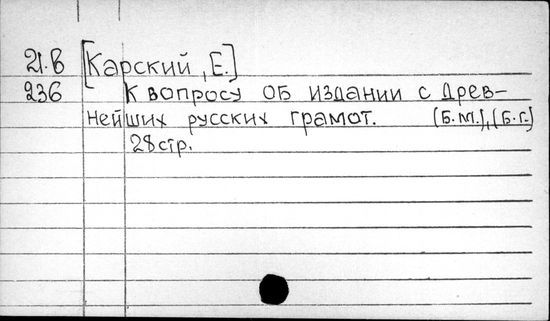 21.В [Карский, Е.]
236 К вопросу об издании с древ-
нейших русских грамот. (Б.м.), (Б.г.)
28 стр.